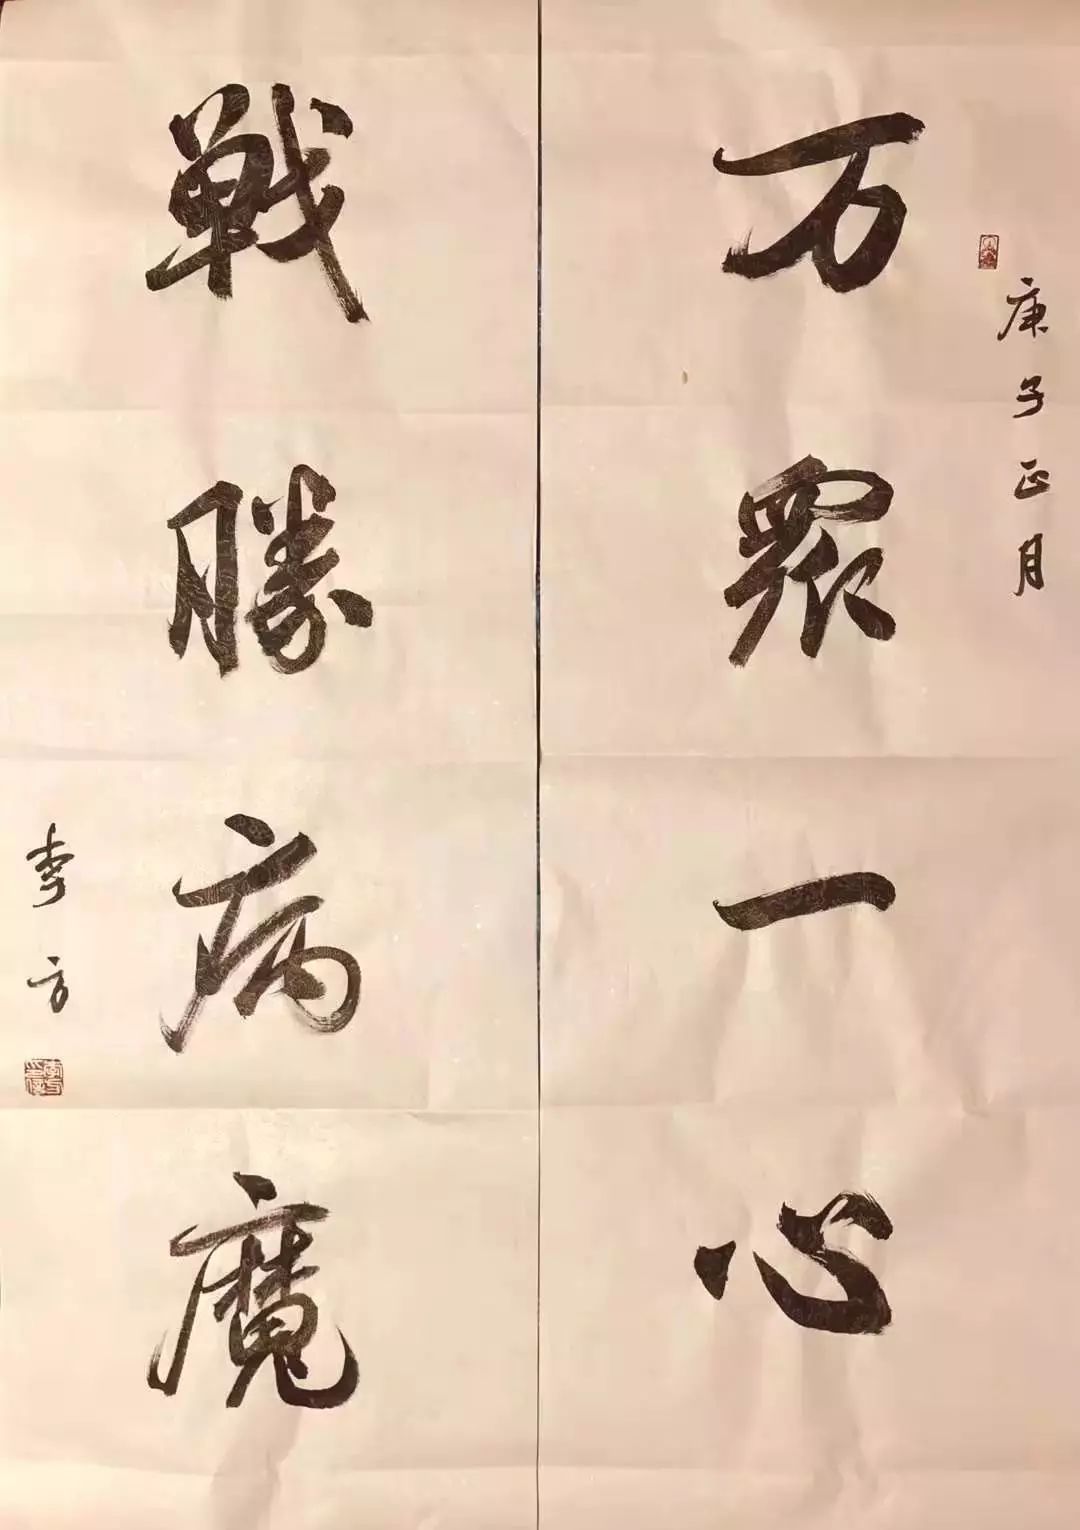 庚子正月
万眾一心
戰勝病魔
李方